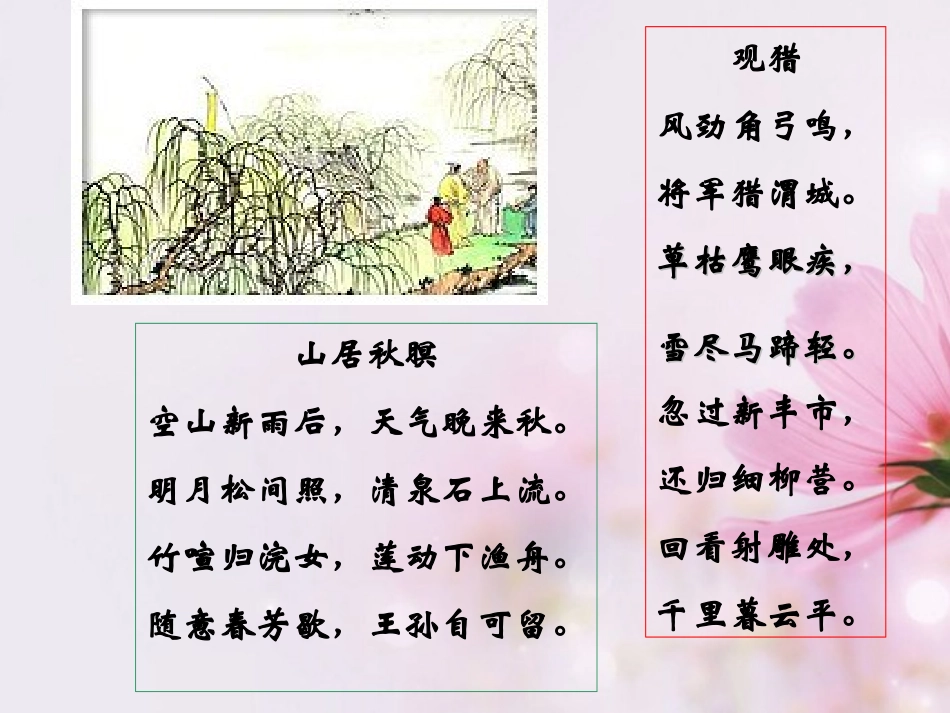 山居秋暝
空山新雨后，天气晚来秋。
明月松间照，清泉石上流。
竹喧归浣女，莲动下渔舟。
随意春芳歇，王孙自可留。
观猎
风劲角弓鸣，
将军猎渭城。
草枯鹰眼疾，
雪尽马蹄轻。
忽过新丰市，
还归细柳营。
回看射雕处，
千里暮云平。